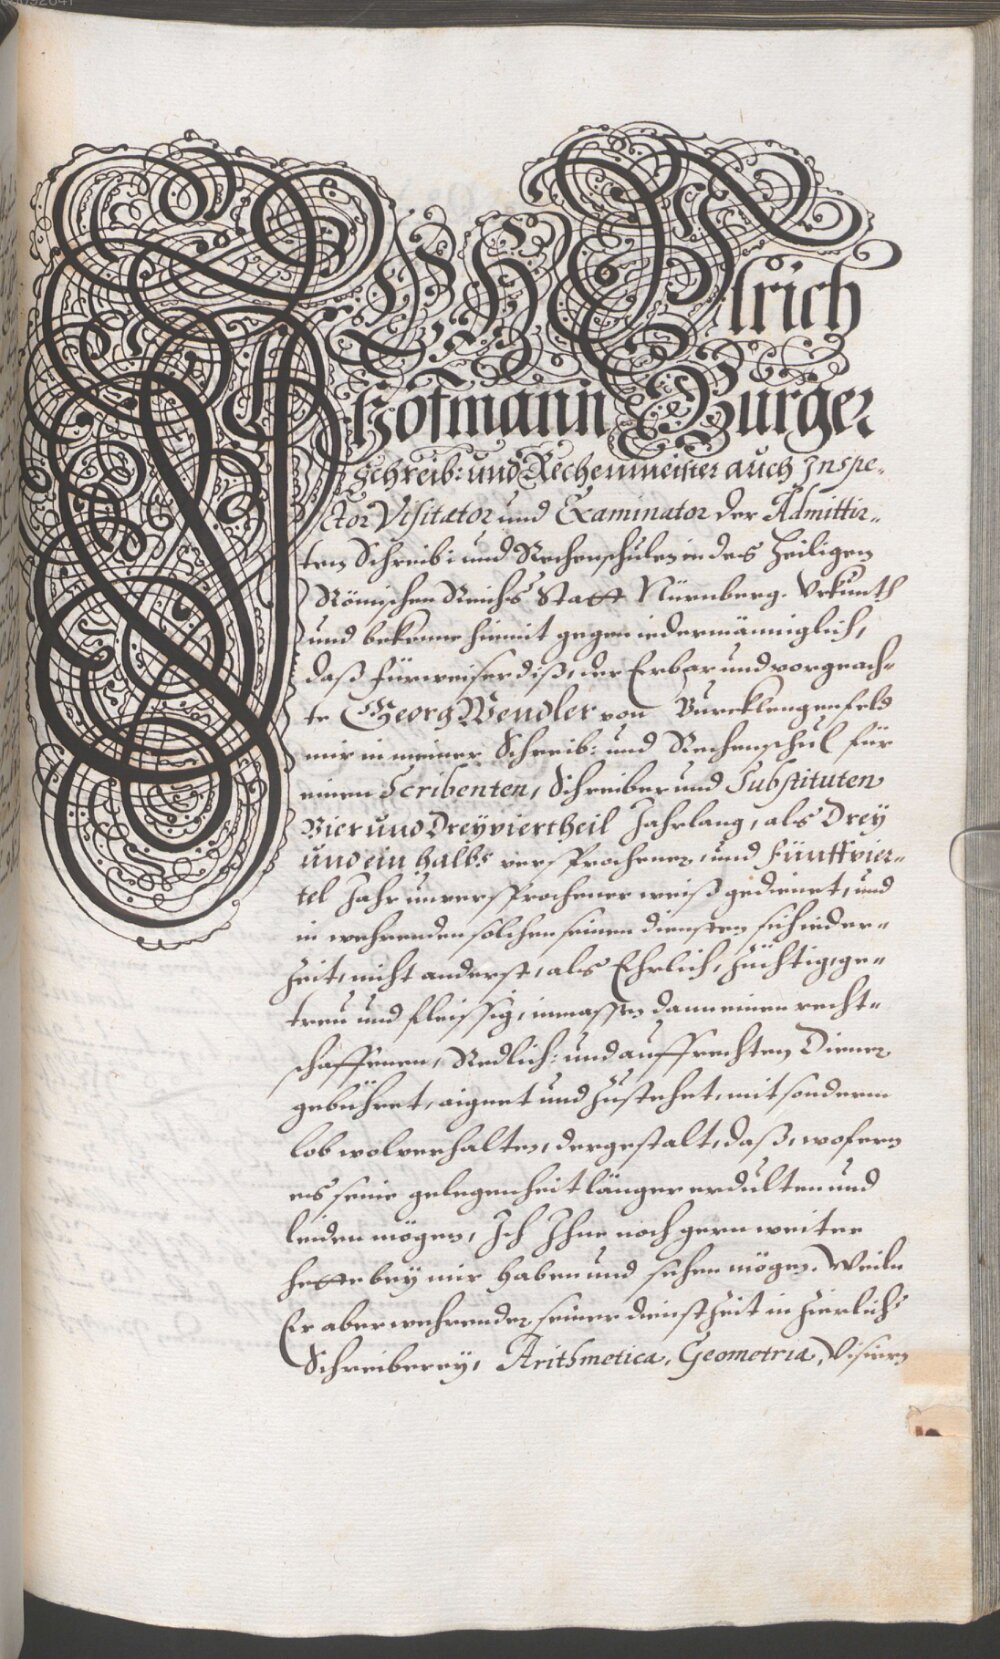 ICH Ulrich
Hofmann Burger
Schreib: und Rechenmeister auch Inspe-
ctor Visitator und Examinator der Admittir-
ten Schreib: und Rechenschulen in des Heiligen
Römischen Reichs Statt Nürnberg. Urkunth
und bekenne hiemit gegen iedermänniglich,
daß fürweiser diß, der Erbar und vorgeach-
te Georg Wendler von Burcklengenfeld
mir in meiner Schreib: und Rechenschul für
einen Scribenten, Schreiber und Substituten
Vier und Dreyviertheil Jahrlang, als Drey
und ein halbs versprochener, und Fünffvier-
tel Jahr unversprochener weiß gedienet, und
in wehrenden solchen seinen diensten sich ieder-
Zeit, nicht anderst, als Ehrlich, züchtig, ge-
treu und fleissig, inmassen dann einen recht-
schaffenen, Redlich: und auffrechten Diener
gebühret, aignet und zustehet, mit sonderm
lob wolverhalten, dergestalt, daß, wofern
es seine gelegenheit länger erdulten und
leiden mögen, Ich Ihne noch gern weiter
hette bey mir haben und sehen mögen. Weiln
Er aber wehrender seiner dienstzeit in Zierlich
Schreiberey, Arithmetica, Geometria, Visiern